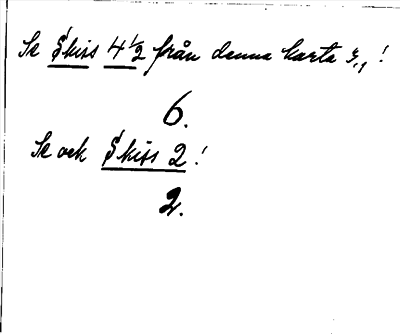 Se Skiss 4½ från denna karta
6.
Se och Skiss 2!
2.